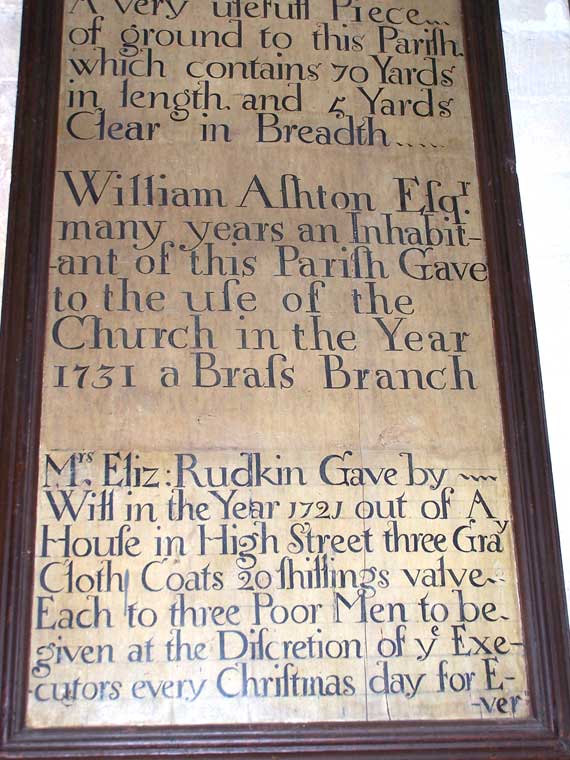 A very uſefull Piece...
of ground to this Pariſh.
which contains 70 Yards
in length. and 5 Yards
Clear in Breadth.....
William Aſhton Eſqr.
many years an Inhabit-
-ant of this Pariſh Gave
to the uſe of the
Church in the Year
1731 a Braſs Branch
Mrs. Eliz: Rudkin Gave by ~~~
Will in the Year 1721 out of A
Houſe in High Street three Gray
Cloth Coats 20 ſhillings valve~
Each to three Poor Men to be.
given at the Diſcretion of ye Exe-
-cutors every Chriſtmas day for E-
-ver